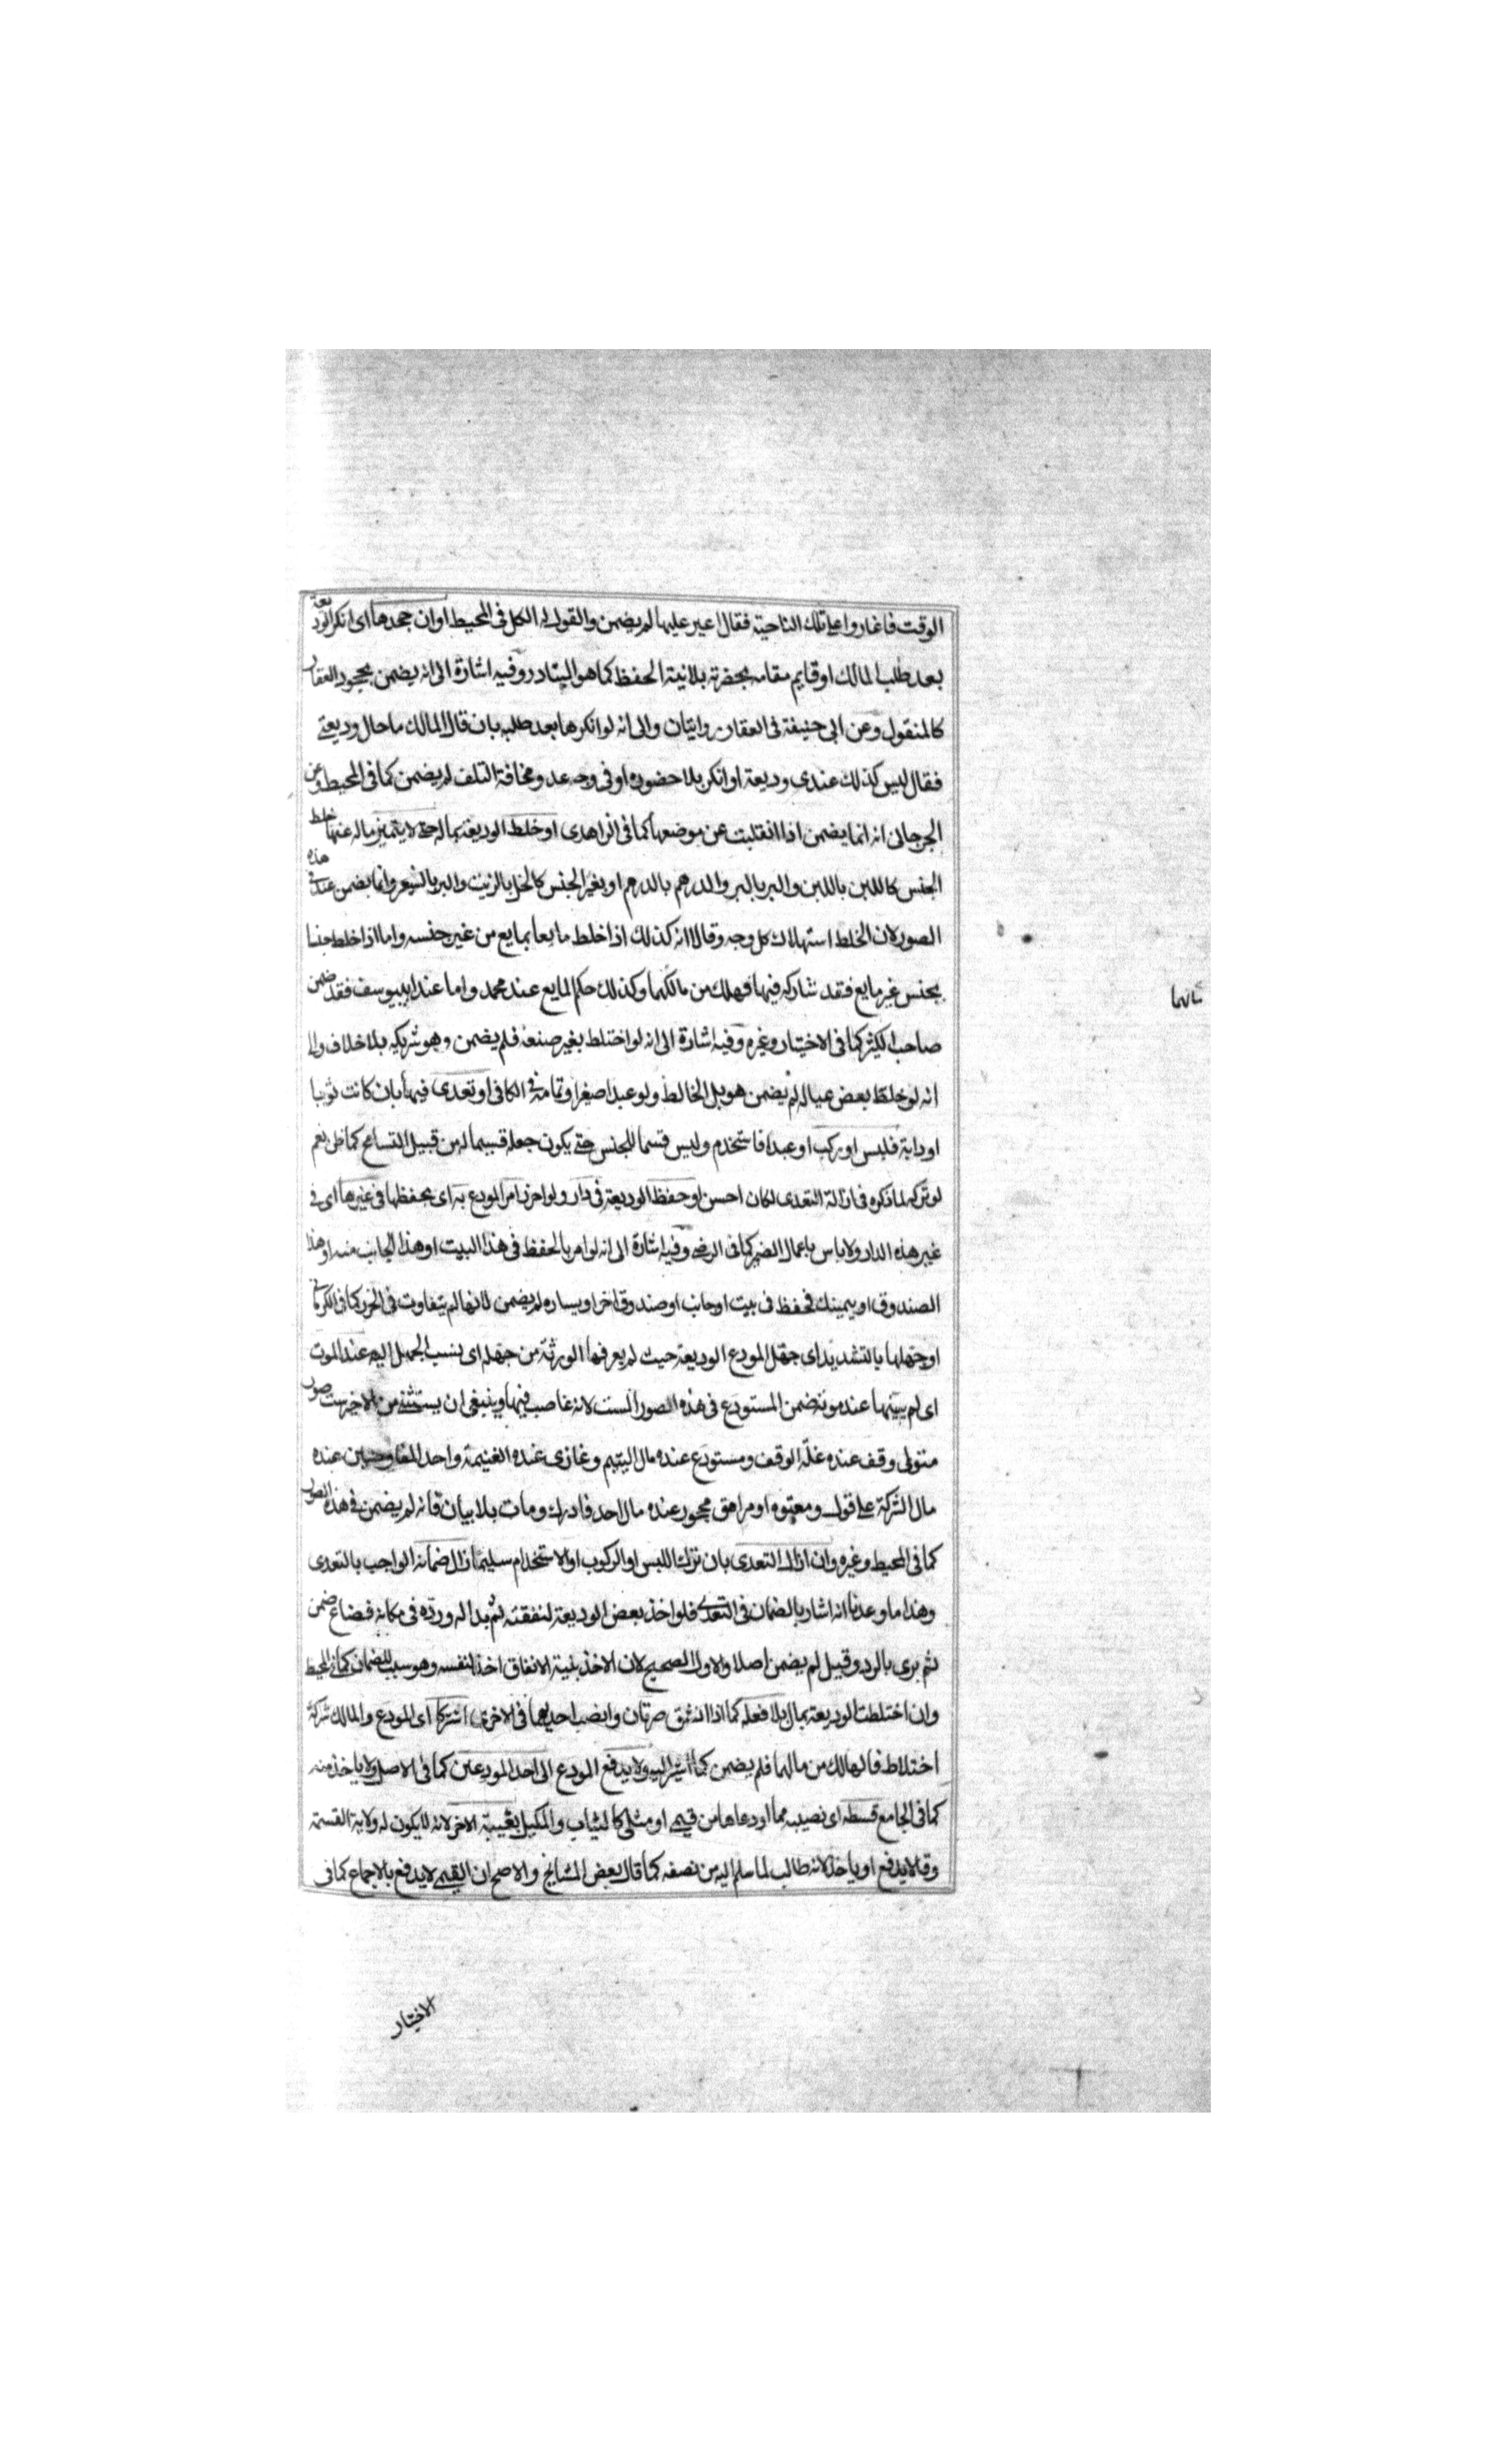 الوقت فاغاروا على تلك الناحية فقال اغير عليها لم يضمن والقول له الكل فى المحيط او ان جحدها اى انكر الوديعة
بعد طلب المالك او قايم مقامه بحضرته بلا نية الحفظ كما هو المتبادر وفيه اشارة الى انه يضمن بجحود العقار
كالمنقول وعن ابى حنيفة فى العقار روايتان والى انه لو انكرها بعد طلبه بان قال المالك ما حال وديعتى
فقال ليس كذلك عندى وديعة او انكر بلا حضوره او فى وجه عدو مخافة التلف لم يضمن كما فى المحيط وعن
الجرجانى انه انما يضمن اذا انقلبت عن موضعها كما فى الزاهدى او خلط الوديعة بماله حتى لا يتميز ماله عنها خلط
الجنس كاللبن باللبن والبر بالبر والدرهم بالدرهم او بغير الجنس كالخل بالزيت والبر بالشعير وانما يضمن عنده فى هذه
الصور لان الخلط استهلاك كل وجه وقالا انه كذلك اذا خلط مايعا بمايع من غير جنسه واما اذا خلط جنسا
بجنس غير مايع فقد شاركه فيها فهلك من مالكهما وكذلك حكم المايع عند محمد واما عند ابى يوسف فقد ضمن
صاحب الكثير كما فى الاختيار وغيره وفيه اشارة الى انه لو اختلط بغير صنعه فلم يضمن وهو شريكه بلا خلاف والى
انه لو خلط بعض عياله لم يضمن هو بل الخالط ولو عبدا صغيرا وتمامه فى الكافى او تعدى فيها بان كانت ثوبا
او دابة فلبس او يركب او عبدا فاستخدم وليس قسما للجنس حتى يكون جعله قسيما له من قبيل التسامح كما ظن نعم
لو تركه لما ذكره فى ازالة التعدى لكان احسن او حفظ الوديعة فى دار ولو احرز امر المودع به اى بحفظها فى غيرها اى فى
غير هذه الدار ولا باس باعمال الضمير كما فى الرضى وفيه اشارة الى انه لو امر بالحفظ فى هذا البيت او هذا الجانب منه او هذا
الصندوق او بيمينك فحفظ فى بيت او جانب او صندوق اخر او يساره لم يضمن لانها لم يتفاوت فى الحرز كما فى الكرمانى
او جهلها بالتشديد اى جهل المودع الوديعة حيث لم يعرفها الورثة من جهله اى نسب الجهل اليه عند الموت
اى لم يبينها عند موته ضمن المستودع فى هذه الصور الست لانه غاصب فيها وينبغى ان يستثنى من الاخير ست صور
متولى وقف عنده غلة الوقف ومستودع عنده مال اليتيم وغازى عنده الغنيمة واحد المفاوضين عنده
مال الشركة على قول ومعتوه او مراهق محجور عنده مال احد فادرك ومات بلا بيان فانه لم يضمن فى هذه الصور
كما فى المحيط وغيره وان ازال التعدى بان ترك اللبس او الركوب او الاستخدام سليما زال ضمانه الواجب بالتعدى
وهذا ما وعدنا انه اشار بالضمان فى التعدى فلو اخذ بعض الوديعة لنفقته ثم بدا له ورده فى مكانه فضاع ضمن
ثم برى بالرد وقيل لم يضمن اصلا والاول الصحيح لان الاخذ بنية الانفاق اخذ لنفسه وهو سبب للضمان كما فى المحيط
وان اختلطت الوديعة بمال بلا فعله كما اذا انشق صرتان وانصب احديهما فى الاخرى اشتركا اى المودع والمالك شركة
اختلاط فالهالك من مالهما فلم يضمن كما اشير اليه ولا يدفع المودع الى احد المودعين كما فى الاصل ولا ياخذ منه
كما فى الجامع قسطه اى نصيبه مما اودعاها من قيمى او مثلى كالثياب والمكيل بغيبة الاخر لانه لا يكون له ولاية القسمة
وقالا يدفع او ياخذ لانه طالب لما سلم اليه من نصفه كما قال بعض المشايخ والاصح ان القيمى لا يدفع بالاجماع كما فى
الاختيار